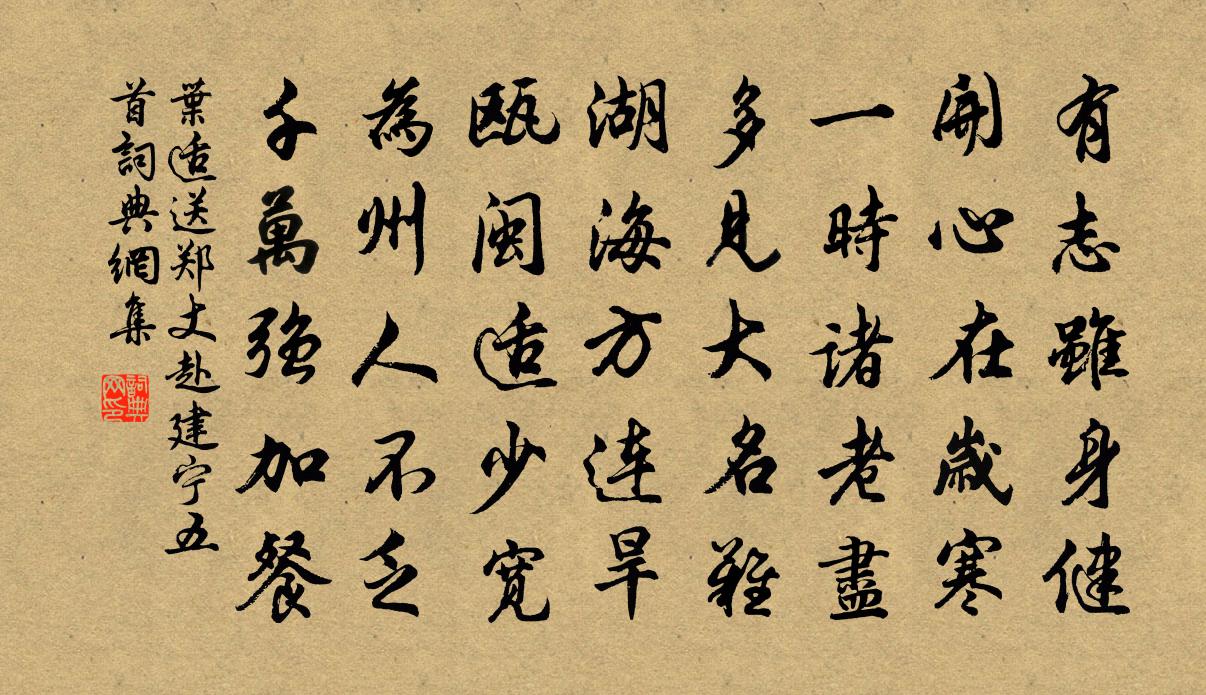 有志雖身健
開心在歲寒
一時諸老盡
多見大名難
湖海方連旱
甌閩适少寬
為州人不乏
千萬強加餐
葉适送郑丈赴建宁五
首詞典網集
詞典网印